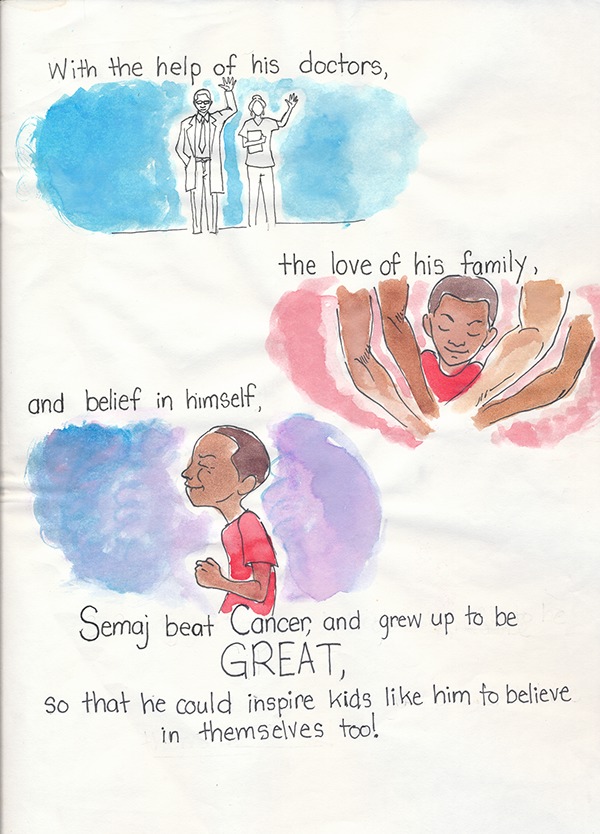 With the help of his doctors,
the love of his family,
and belief in himself,
Semaj beat Cancer, and grew up to be
GREAT,
so that he could inspire kids like him to believe
in themselves too!